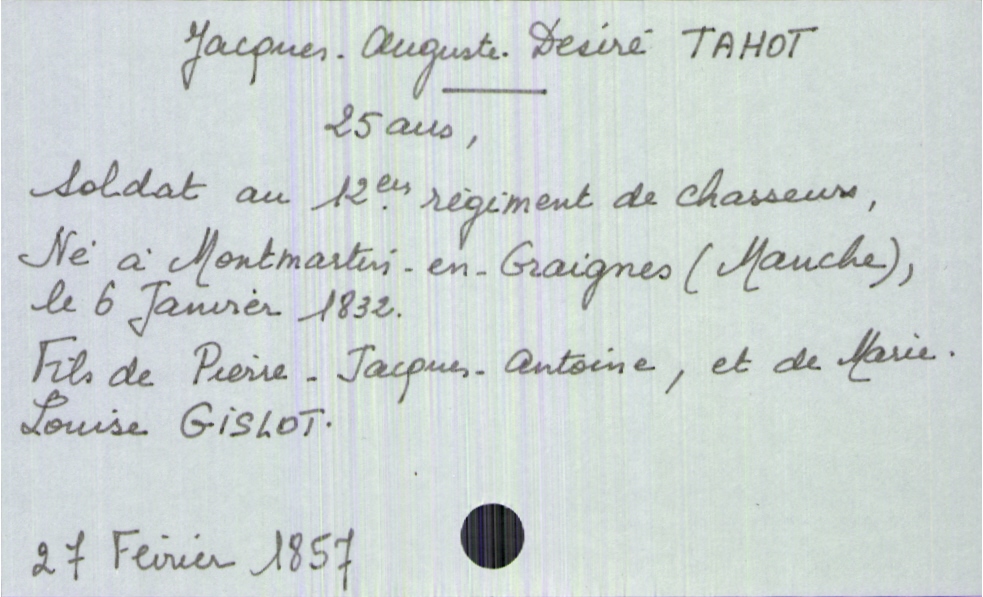 Jacques-Auguste-Désiré TAHOT
25 ans,
Soldat au 12ème régiment de chasseurs,
Né à Montmartin-en-Graignes (Manche),
le 6 Janvier 1832.
Fils de Pierre-Jacques-Antoine, et de Marie-
Louise GISLOT.
27 Février 1857